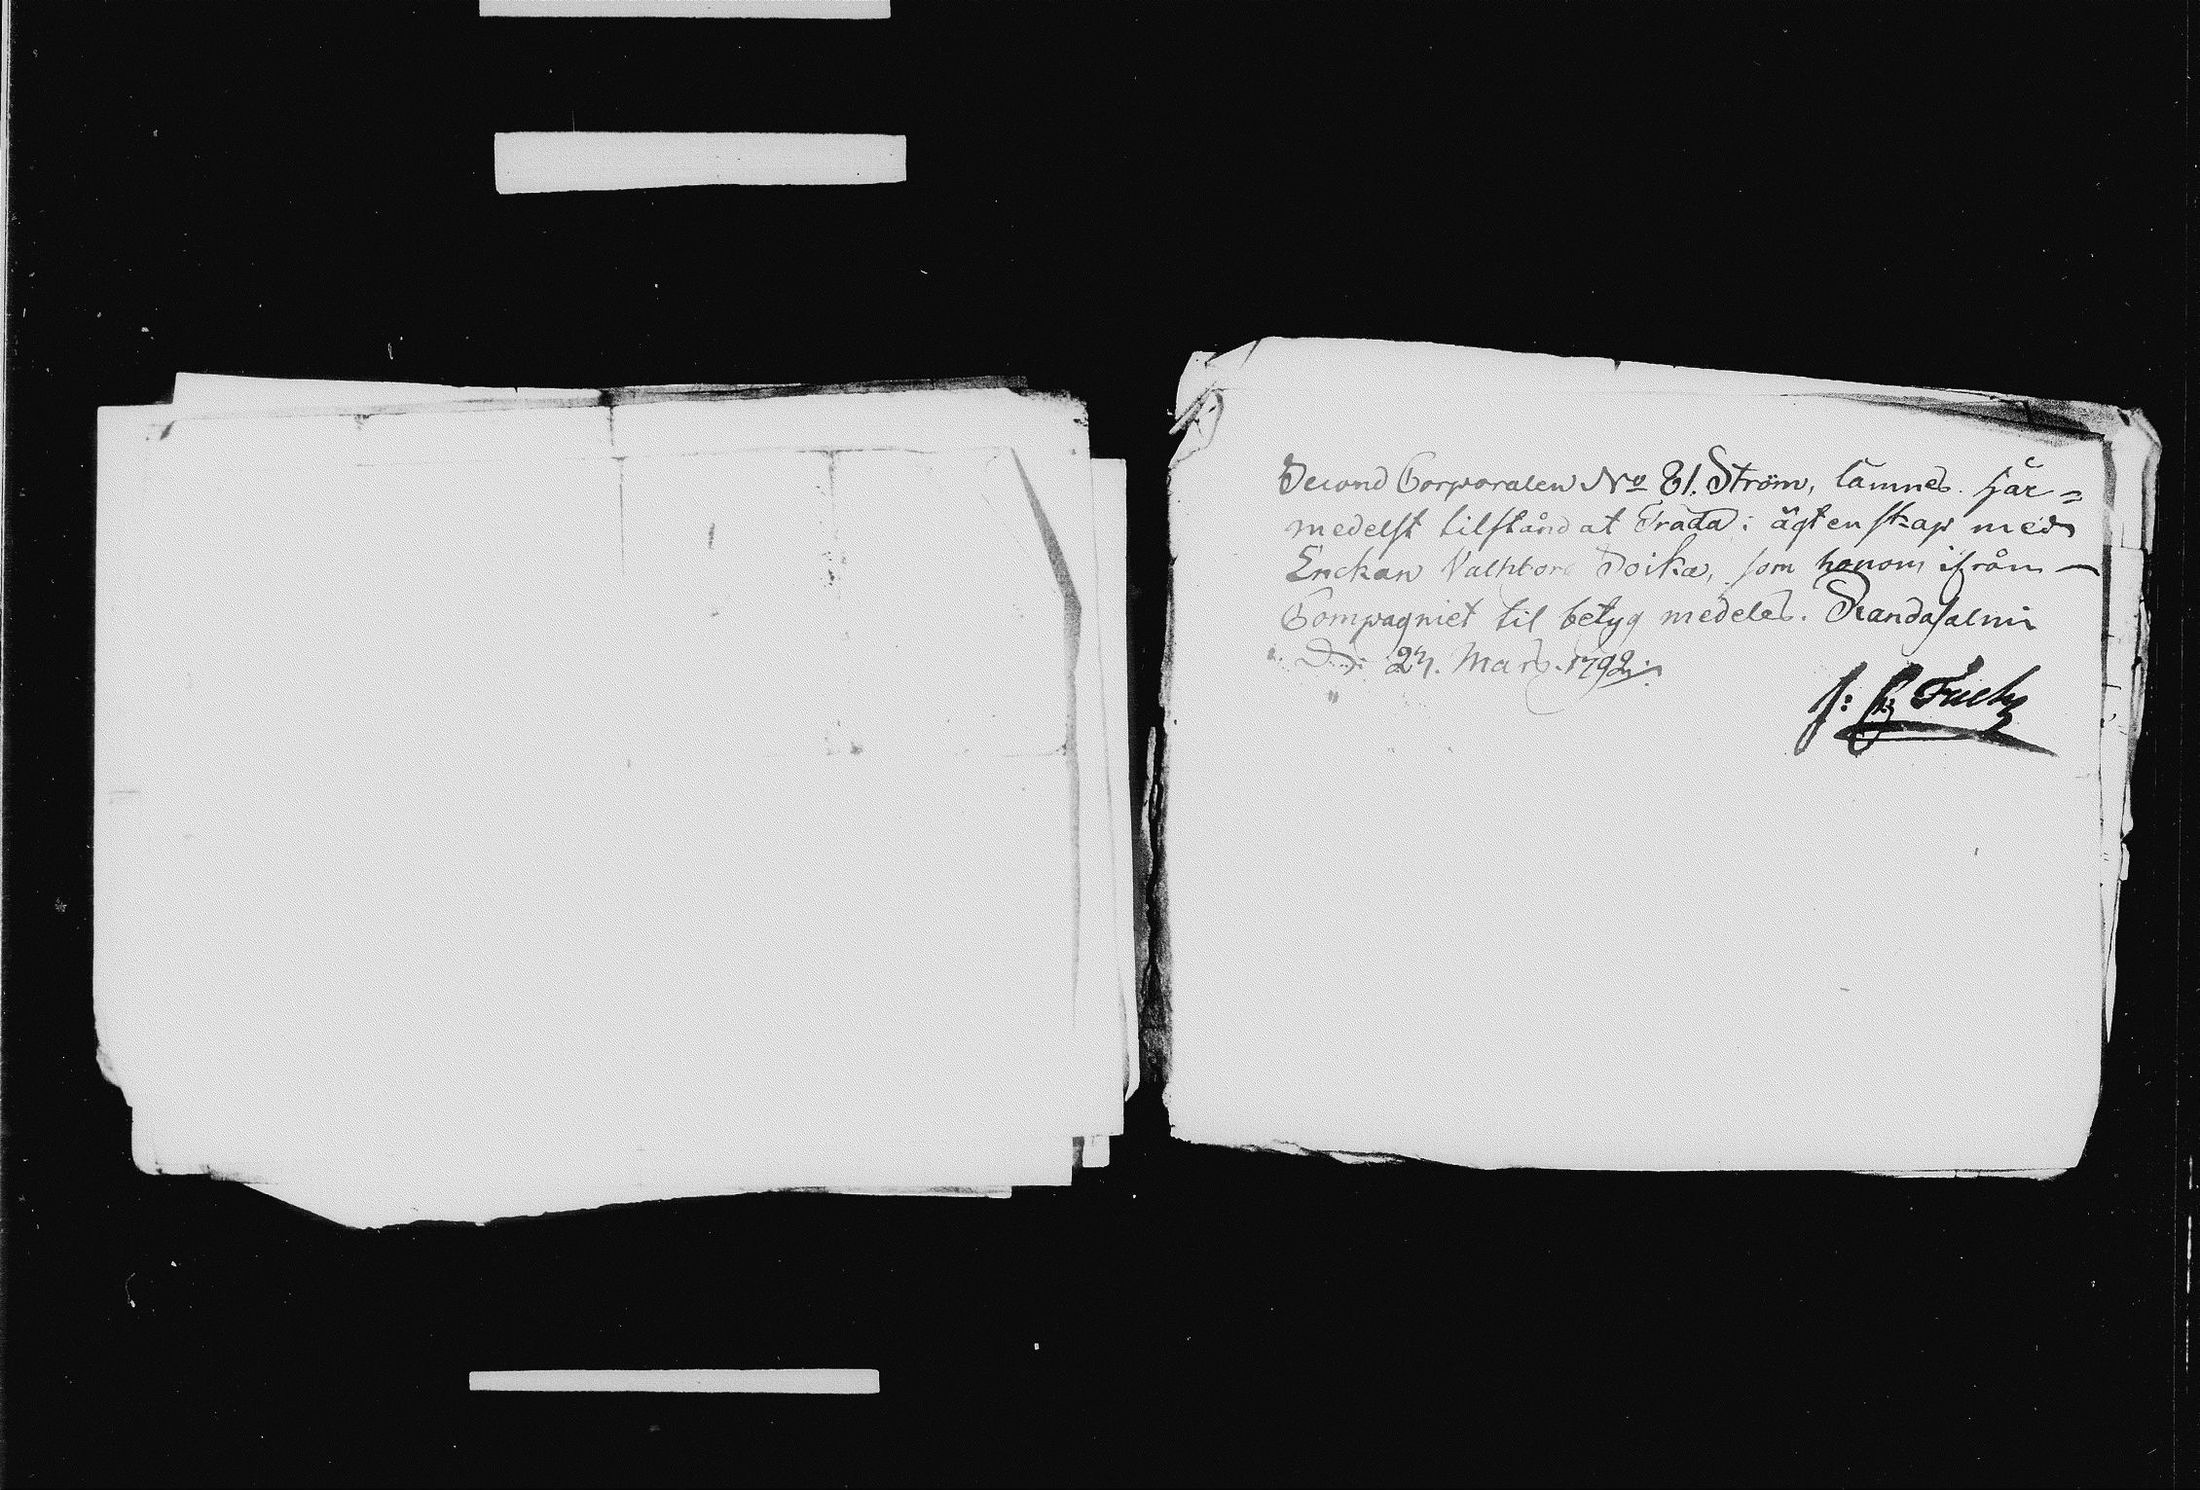 Second Corporalen No 81. Ström, lämnes här=
medelst tilstånd at Träda i ägtenskap med
Enckan Valhbor Soika, som honom ifrån
Compagniet til betyg medeles. Randasalmi
D. 27. Mars. 1792.
J: G